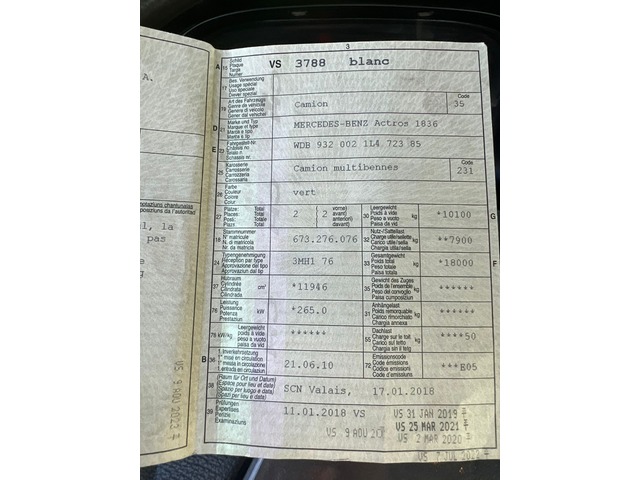 3
A 15 Schild Plaque Targa Numer VS 3788 blanc
17 Bes. Verwendung Usage spécial Uso speciale Diever spezial
19 Art des Fahrzeugs Genre de véhicule Genere di veicolo Gener dal vehichel Camion Code 35
D 21 Marke und Typ Marque et type Marca e tipo Marca e tip MERCEDES-BENZ Actros 1836
E 23 Fahrgestell-Nr. Châssis no Telaio n. Schassis nr. WDB 932 002 1L4 723 85
25 Karosserie Carrosserie Carrozzeria Carossaria Camion multibennes Code 231
26 Farbe Couleur Colore Colur vert
27 Plätze: Total Places: Total Posti: Totale Plazs: Total 2 2 vorne) avant) anteriori) davant) 30 Leergewicht Poids à vide Peso a vuoto Paisa da vid kg *10100 G
18 Stammnummer N° matricule N. di matricola Nr. da matricla 673.276.076 32 Nutz-/Sattellast Charge utile/sellette Carico utile/sella Chargia utila/sella kg **7900
24 Typengenehmigung Réception par type Approvazione del tipo Approvaziun dal tip 3MH1 76 33 Gesamtgewicht Poids total Peso totale Paisa totala kg *18000 F
37 Hubraum Cylindrée Cilindrata Cilindrada cm³ *11946 35 Gewicht des Zuges Poids de l'ensemble Peso del convoglio Paisa cumposiziun kg ******
76 Leistung Puissance Potenza Prestaziun kW *265.0 31 Anhängelast Poids remorquable Carico rimorchiato Chargia annexa kg ******
78 kW/kg Leergewicht poids à vide peso a vuoto paisa da vid ****** 55 Dachlast Charge sur le toit Carico sul tetto Chargia sin il tetg kg ****50
B 36 1. Inverkehrsetzung 1re mise en circulation 1. messa in circolazione 1. entrada en circulaziun 21.06.10 72 Emissionscode Code émissions Codice emissioni Code d'emissiuns ***E05
38 (Raum für Ort und Datum) (Espace pour lieu et date) (Spazio per luogo e data) (Spazi per lieu e data) SCN Valais, 17.01.2018
39 Prüfungen Expertises Perizie Examinaziuns 11.01.2018 VS VS 31 JAN 2019
VS 25 MAR 2021
VS 9 AOU 20 VS 2 MAR 2020
VS 7 JUL 2022
A.
notaziuns chantunalas
posiziuns da l'autoritad
l, la
pas
VS 9 AOU 2023